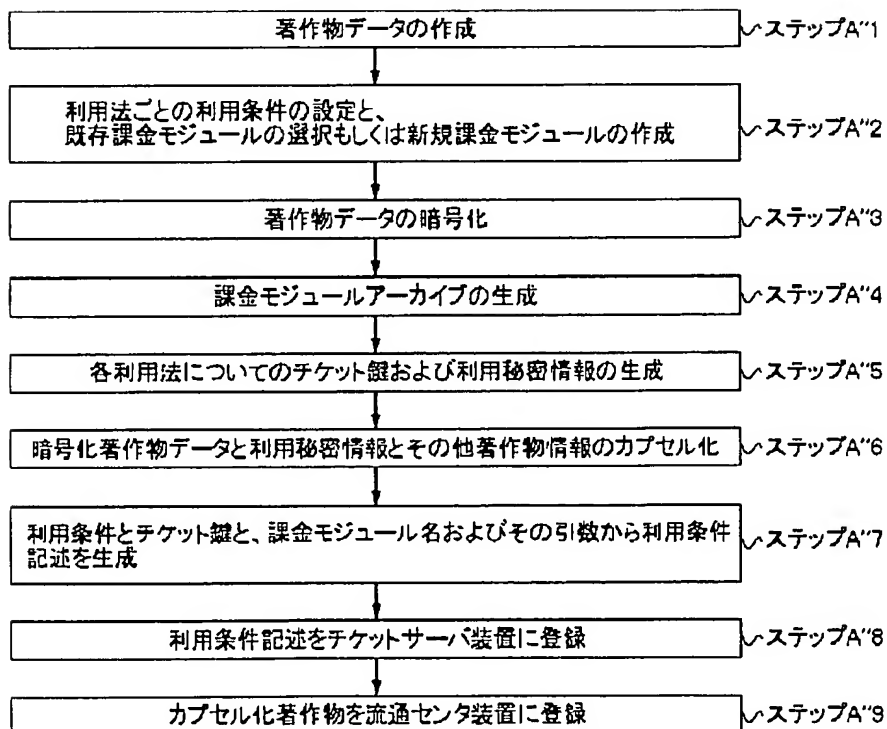 著作物データの作成
ステップA"1
利用法ごとの利用条件の設定と、
既存課金モジュールの選択もしくは新規課金モジュールの作成
ステップA"2
著作物データの暗号化
ステップA"3
課金モジュールアーカイブの生成
ステップA"4
各利用法についてのチケット鍵および利用秘密情報の生成
ステップA"5
暗号化著作物データと利用秘密情報とその他著作物情報のカプセル化
ステップA"6
利用条件とチケット鍵と、課金モジュール名およびその引数から利用条件
記述を生成
ステップA"7
利用条件記述をチケットサーバ装置に登録
ステップA"8
カプセル化著作物を流通センタ装置に登録
ステップA"9